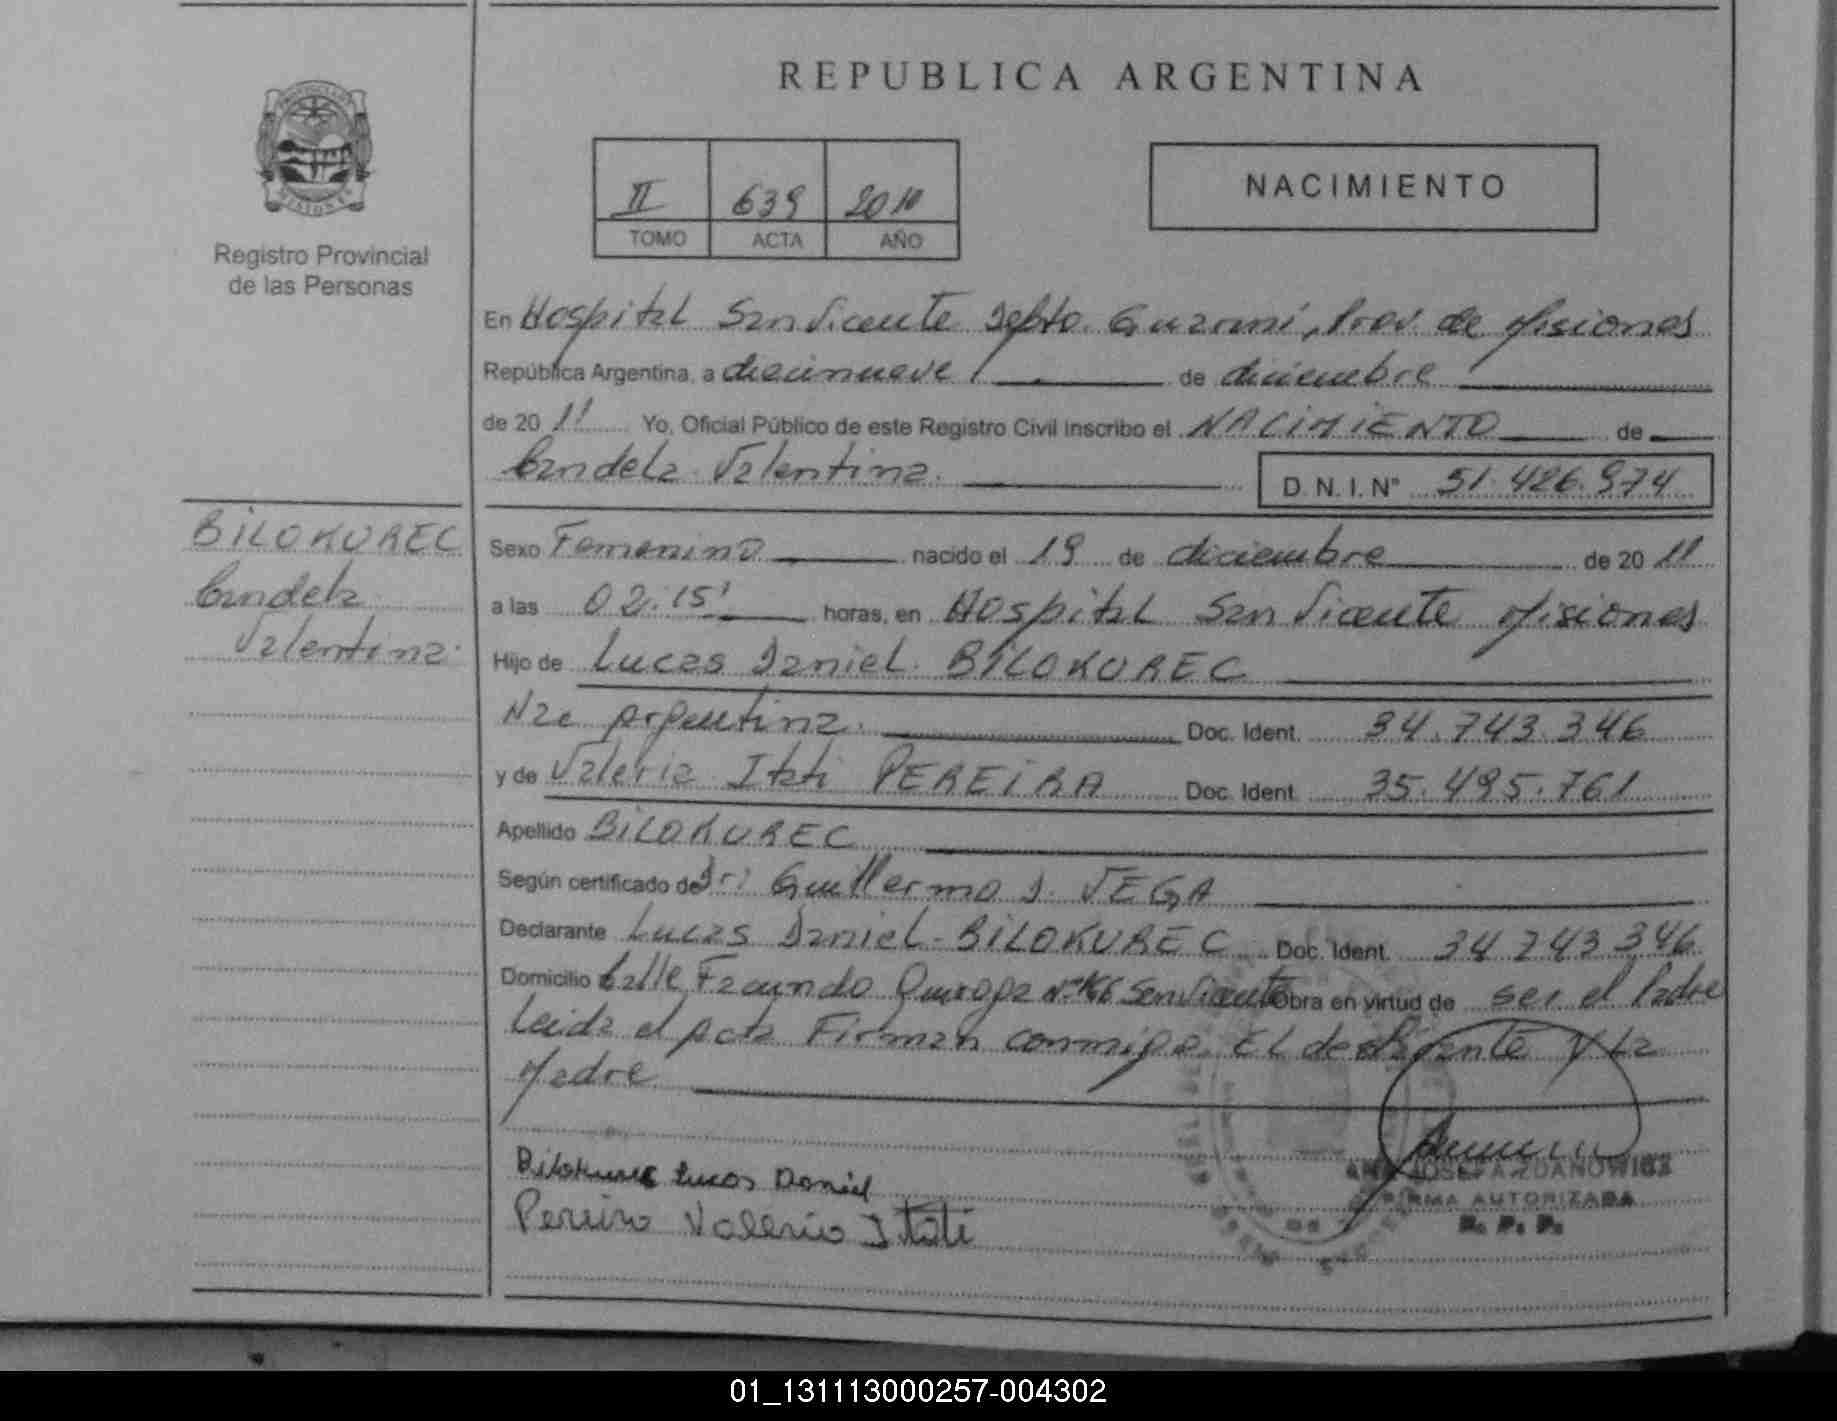 REPUBLICA ARGENTINA
PROVINCIA DE
MISIONES
Registro Provincial
de las Personas
II 639 2011
TOMO ACTA AÑO
NACIMIENTO
En Hospital San Vicente Depto. Guaraní, Prov. de Misiones
República Argentina, a diecinueve de diciembre
de 20 11 Yo, Oficial Público de este Registro Civil inscribo el NACIMIENTO de
Candela Valentina. D.N.I. N° 51.426.974
BILOKUREC
Candela
Valentina.
Sexo Femenino nacido el 19 de diciembre de 20 11
a las 02:15' horas, en Hospital San Vicente Misiones
Hijo de Lucas Daniel BILOKUREC
Nac Argentina. Doc. Ident. 34.743.346
y de Valeria Itati PEREIRA Doc. Ident. 35.495.761
Apellido BILOKUREC
Según certificado de Dr: Guillermo D. VEGA
Declarante Lucas Daniel - BILOKUREC Doc. Ident. 34 743 346
Domicilio Calle Facundo Quiroga N° 166 San Vicente Obra en virtud de ser el Padre
Leida el Acta Firman conmigo. El declarante y La
Madre
Bilokurec Lucas Daniel
Pereira Valeria Itati
ANA JOSEFA ZDANOWICZ
FIRMA AUTORIZADA
R. P. P.
01_131113000257-004302